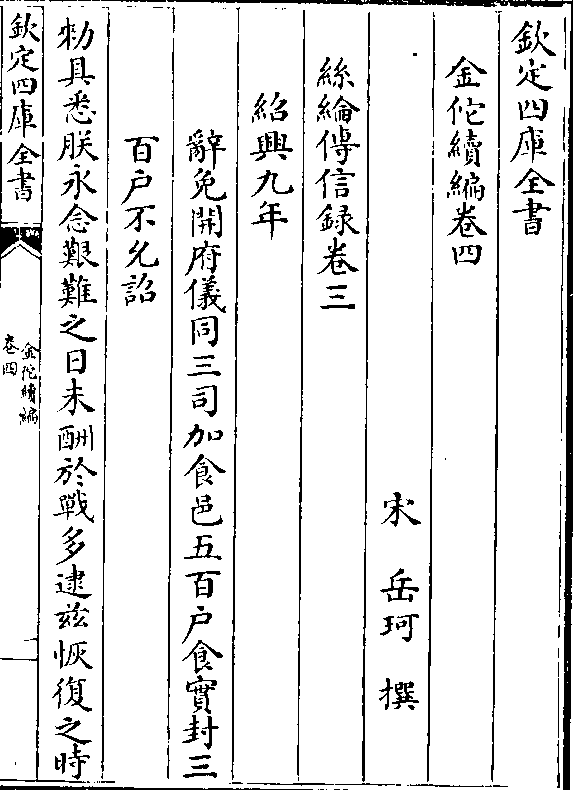 欽定四庫全書
金佗續編卷四
宋 岳珂 撰
絲綸傳信録卷三
紹興九年
辭免開府儀同三司加食邑五百户食實封三
百户不允詔
勑具悉朕永念艱難之日未酬於戰多逮兹恢復之時
欽定四庫全書
金佗續編
卷四
一